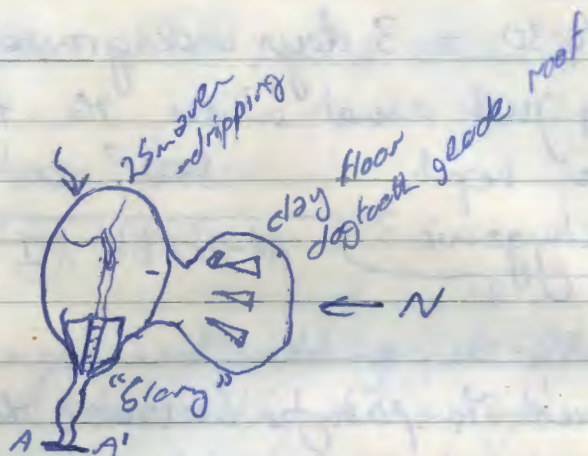 25m aven
dripping
clay floor
dogtooth glade roof
N
"Slany"
A A'